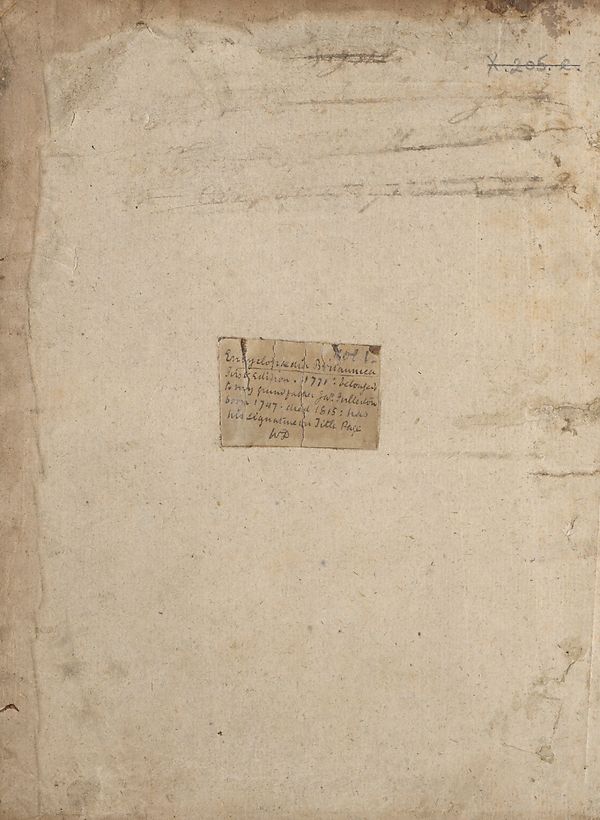 X.205.e.
Vol I.
Encyclopædia Britannica
First Edition. 1771: belonged
to my grandfather Jas. Fullerton
born 1747. died 1815: has
his signature on Title Page
WD